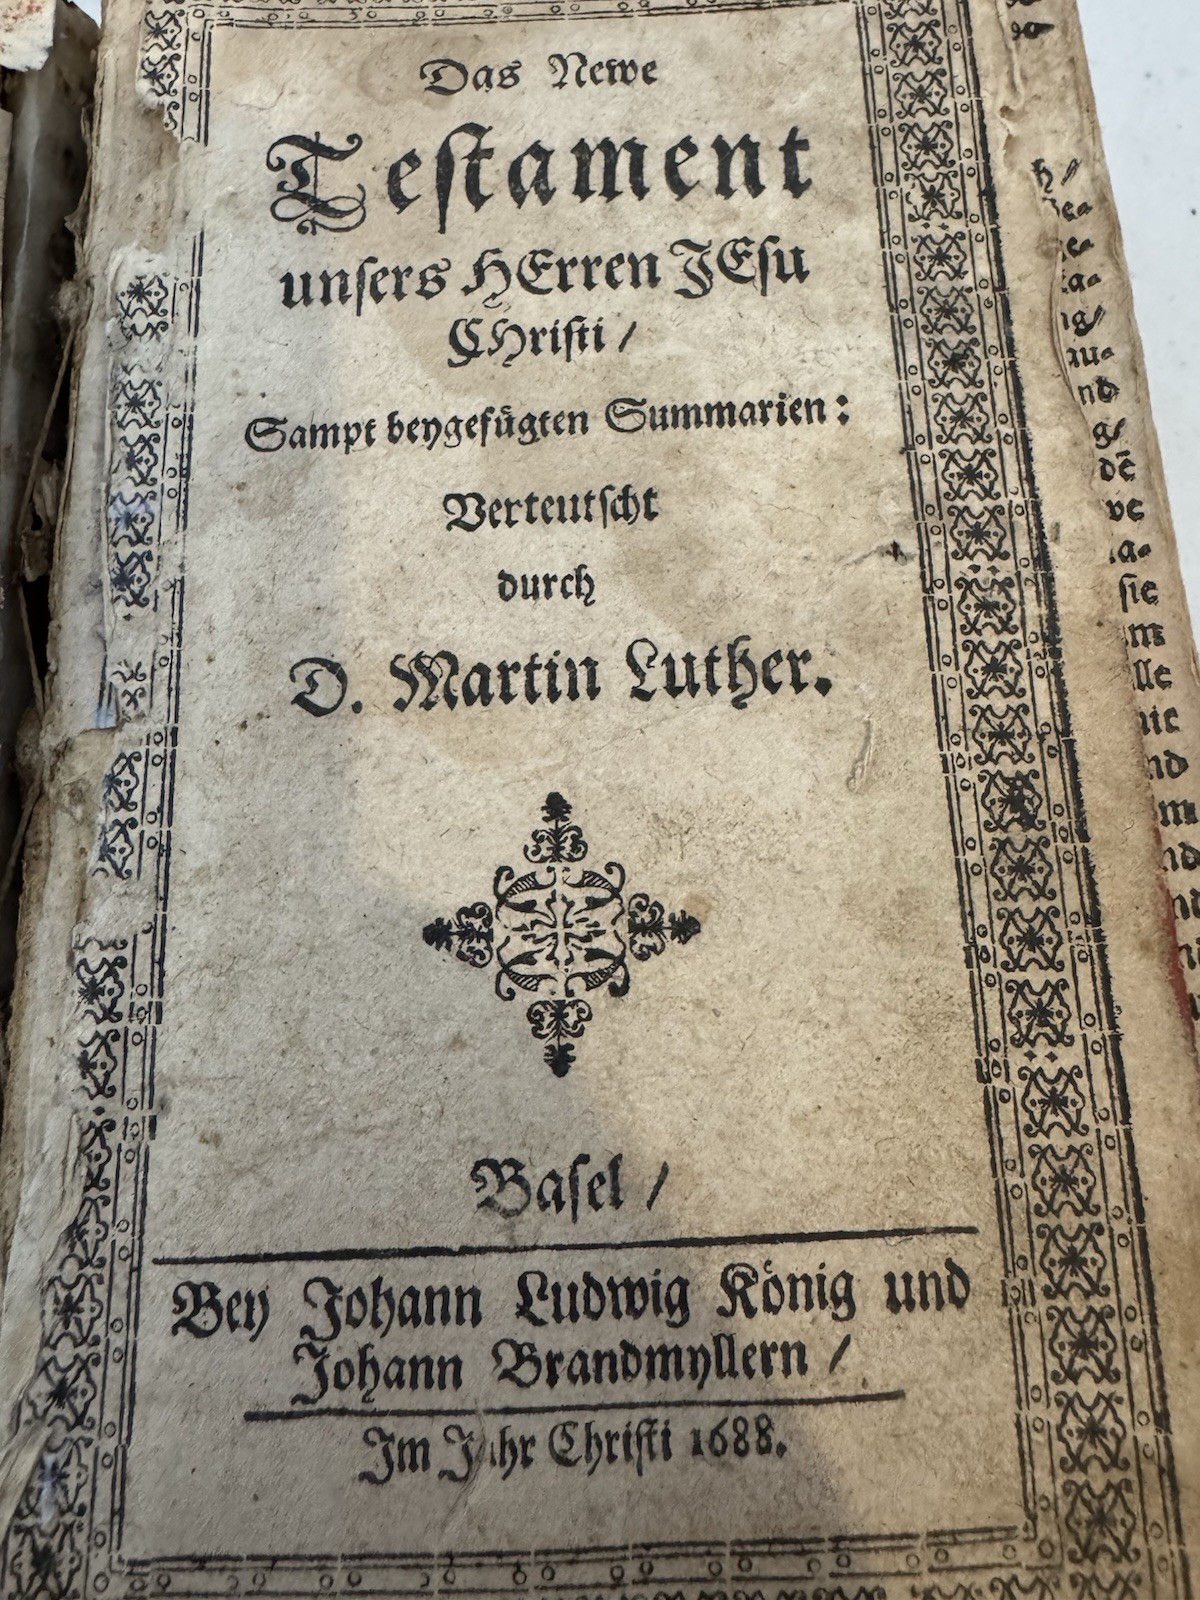 Das Newe
Testament
unsers HErren JEsu
CHristi /
Sampt beygefügten Summarien:
Verteutscht
durch
D. Martin Luther.
Basel /
Bey Johann Ludwig König und
Johann Brandmyllern /
Im Jahr Christi 1688.